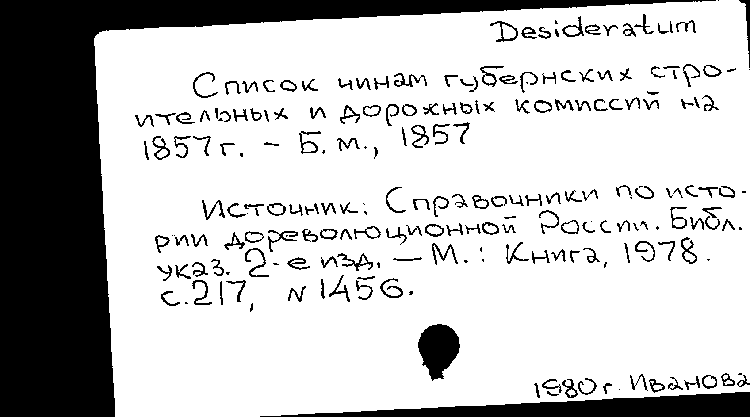 Desideratum
Список чинам губернских стро-
ительных и дорожных комиссий на
1857 г. - Б. м., 1857
Источник: Справочники по исто-
рии дореволюционной России. Библ.
указ. 2-е изд. — М.: Книга, 1978.
с. 217, N 1456.
1980 г. Иванова